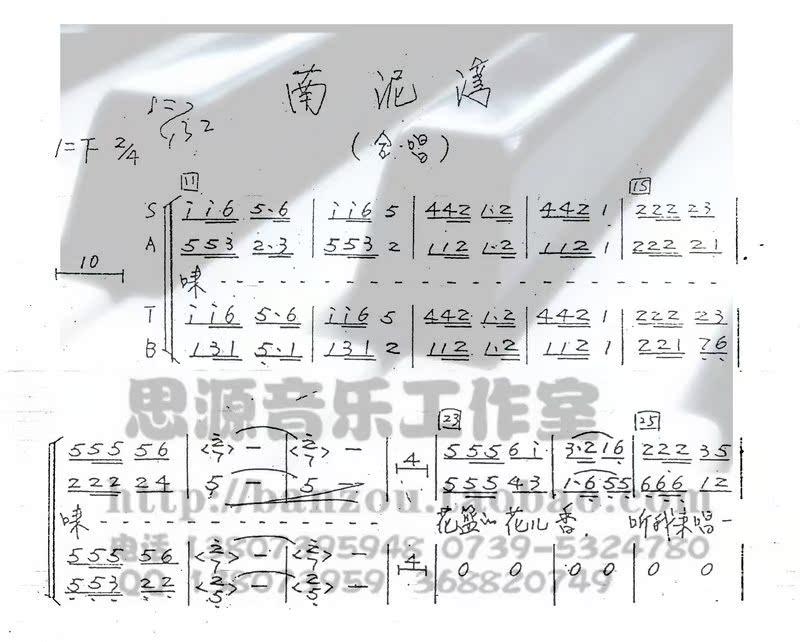 南泥湾
(合唱)
1=下 2/4
11 15
S i i 6 5·6 | i i 6 5 | 4 4 2 1·2 | 4 4 2 1 | 2 2 2 2 3 |
A 5 5 3 2·3 | 5 5 3 2 | 1 1 2 1·2 | 1 1 2 1 | 2 2 2 2 1 |
10
唻 - - - -
T i i 6 5·6 | i i 6 5 | 4 4 2 1·2 | 4 4 2 1 | 2 2 2 2 3 |
B 1 3 1 5·1 | 1 3 1 2 | 1 1 2 1·2 | 1 1 2 1 | 2 2 1 7 6 |
思源音乐工作室
23 25
5 5 5 5 6 | <2 7> — | <2 7> — | 4 | 5 5 5 6 i | 3·2 1 6 | 2 2 2 3 5 |
2 2 2 2 4 | 5 — | 5 — | 5 5 5 4 3 | 1·6 5 5 | 6 6 6 1 2 |
http://banzou.taobao.com
唻 - - - - 花篮的花儿香, 听我来唱一
电话 13507395948 0739-5324780
5 5 5 5 6 | <2 7> — | <2 7> — | 4 | 0 0 | 0 0 | 0 0 |
5 5 3 2 2 | <2 5> — | <2 5> —
368820749